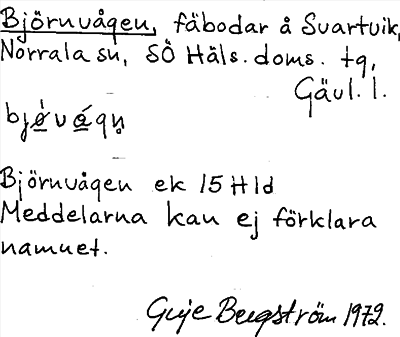 Björnvågen, fäbodar å Svartvik,
Norrala sn, SÖ Häls. doms. tg,
Gävl. l.
Björnvågen ek 15 H1d
Meddelarna kan ej förklara
namnet.
Guje Bergström 1972.